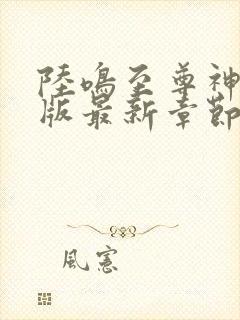 陸鳴至尊神
版最新章節
風憲